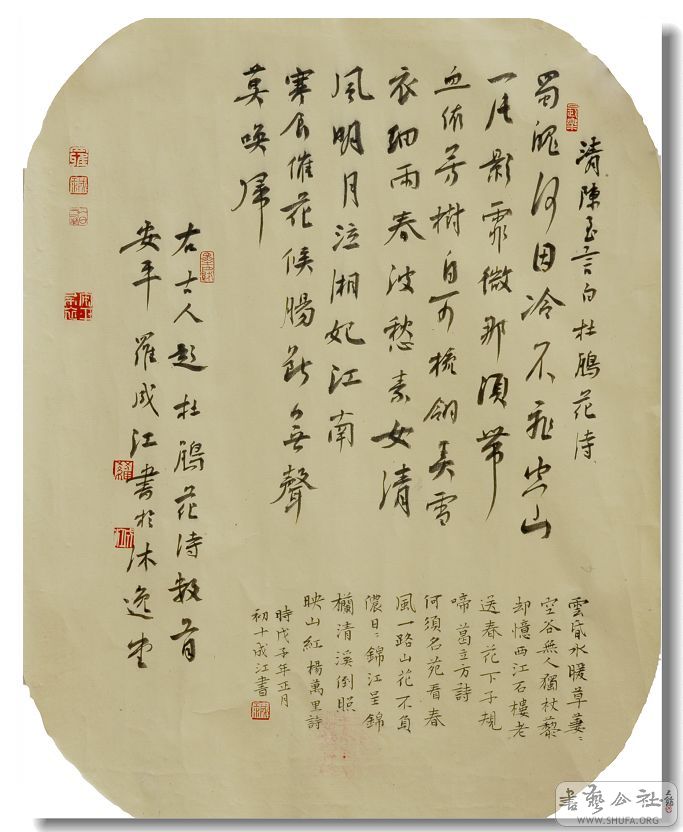 清陳至言白杜鵑花詩
蜀魄何因冷不飛空山
一片影霏微那須帶
血依芳樹自可梳翎弄雪
衣細雨春波愁素女清
風明月泣湘妃江南
寒食催花候腸斷無聲
莫喚歸
右古人題杜鵑花詩數首
安平羅成江書於沐逸堂
雲蒸水暖草萋〻
空谷無人獨杖藜
却憶西江石樓老
送春花下子規
啼葛立方詩
何須名苑看春
風一路山花不負
儂日〻錦江呈錦
欄清溪倒照
映山紅楊萬里詩
時戊子年正月
初十成江書
書藝公社
WWW.SHUFA.ORG